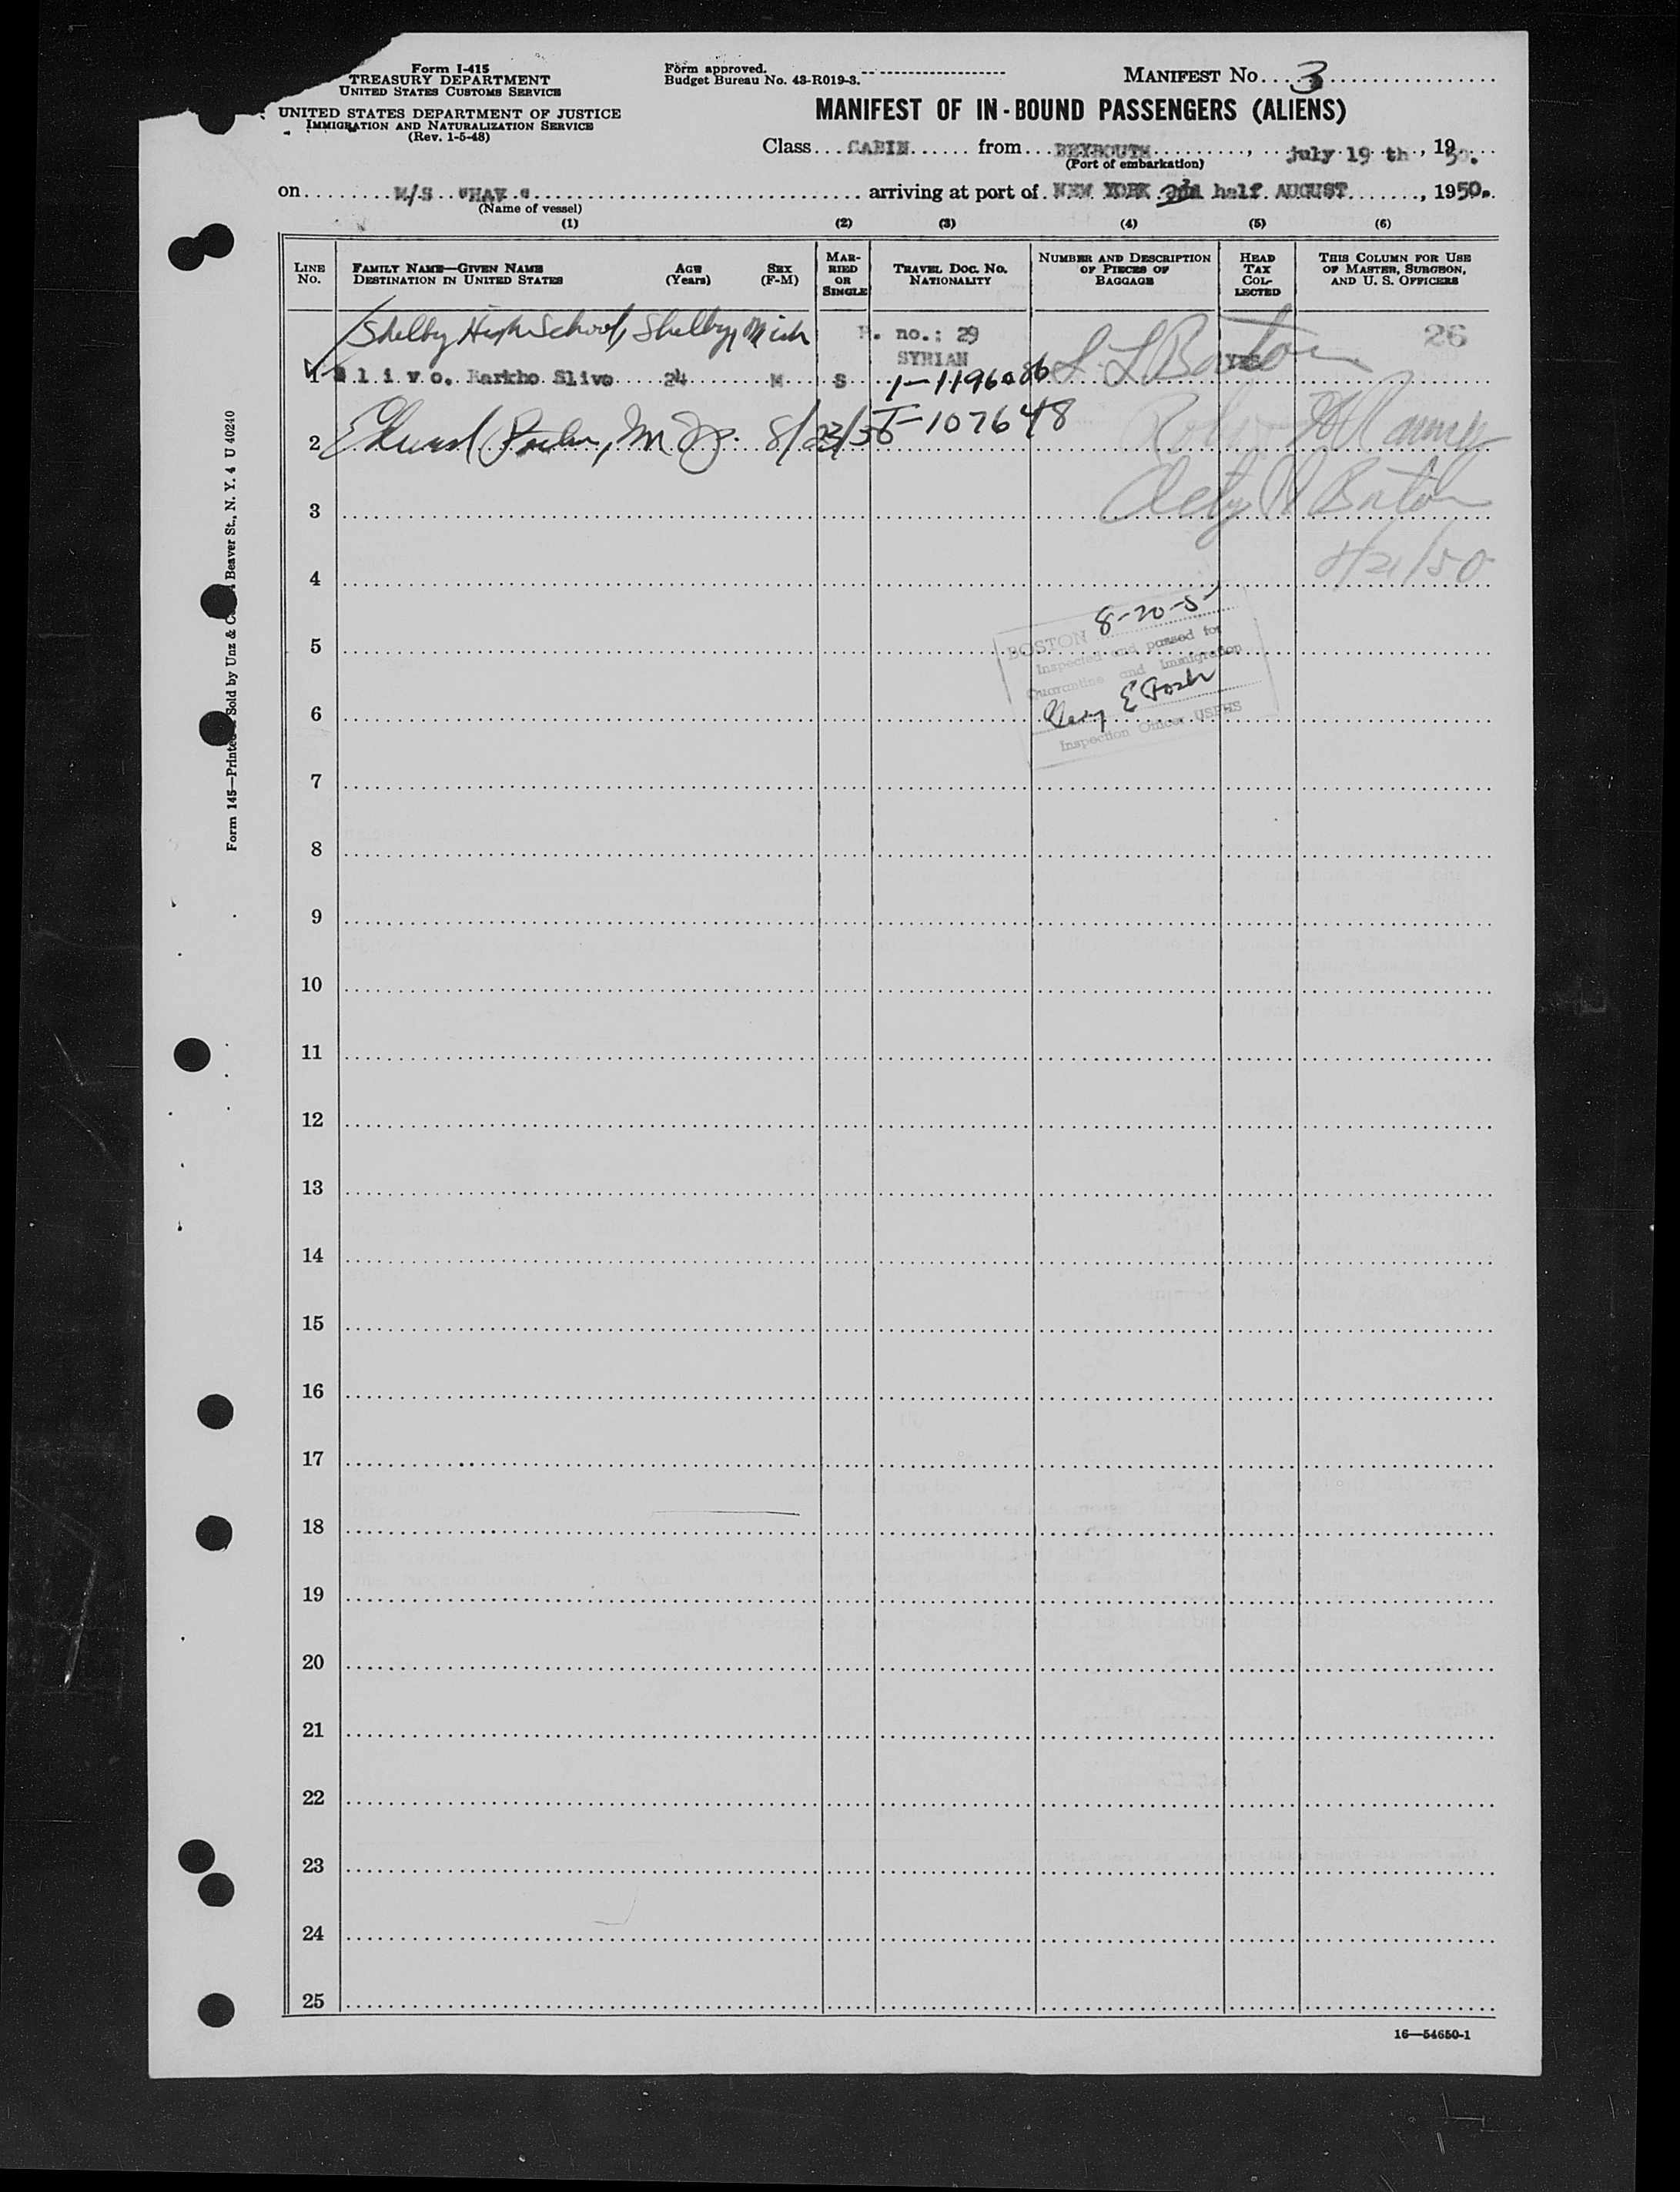 Form I-415
TREASURY DEPARTMENT
UNITED STATES CUSTOMS SERVICE
UNITED STATES DEPARTMENT OF JUSTICE
IMMIGRATION AND NATURALIZATION SERVICE
(Rev. 1-5-48)
Form approved.
Budget Bureau No. 43-R019-3.
MANIFEST No. 3
MANIFEST OF IN-BOUND PASSENGERS (ALIENS)
Class CABIN from BEYROUTH, july 19 th, 1950.
(Port of embarkation)
on M/S "HAV" arriving at port of NEW YORK 2nd half AUGUST, 1950.
(Name of vessel)
(1) (2) (3) (4) (5) (6)
LINE No.
FAMILY NAME—GIVEN NAME
DESTINATION IN UNITED STATES
AGE (Years)
SEX (F-M)
MARRIED OR SINGLE
TRAVEL DOC. NO.
NATIONALITY
NUMBER AND DESCRIPTION OF PIECES OF BAGGAGE
HEAD TAX COLLECTED
THIS COLUMN FOR USE OF MASTER, SURGEON, AND U. S. OFFICERS
Shelby High School, Shelby, Mich P. no.: 29 26
SYRIAN YES
1 Slivo. Barkho Slivo 24 M S
L L Barton
2 T-107648
Barton
3
4
8/21/50
BOSTON 8-20-5
5
Inspected and passed for
Quarantine and Immigration
6
Inspection Officer USPHS
7
8
9
10
11
12
13
14
15
16
17
18
19
20
21
22
23
24
25
16—54650-1
Form 145—Printed Sold by Unz & Beaver St., N. Y. 4 U 40240